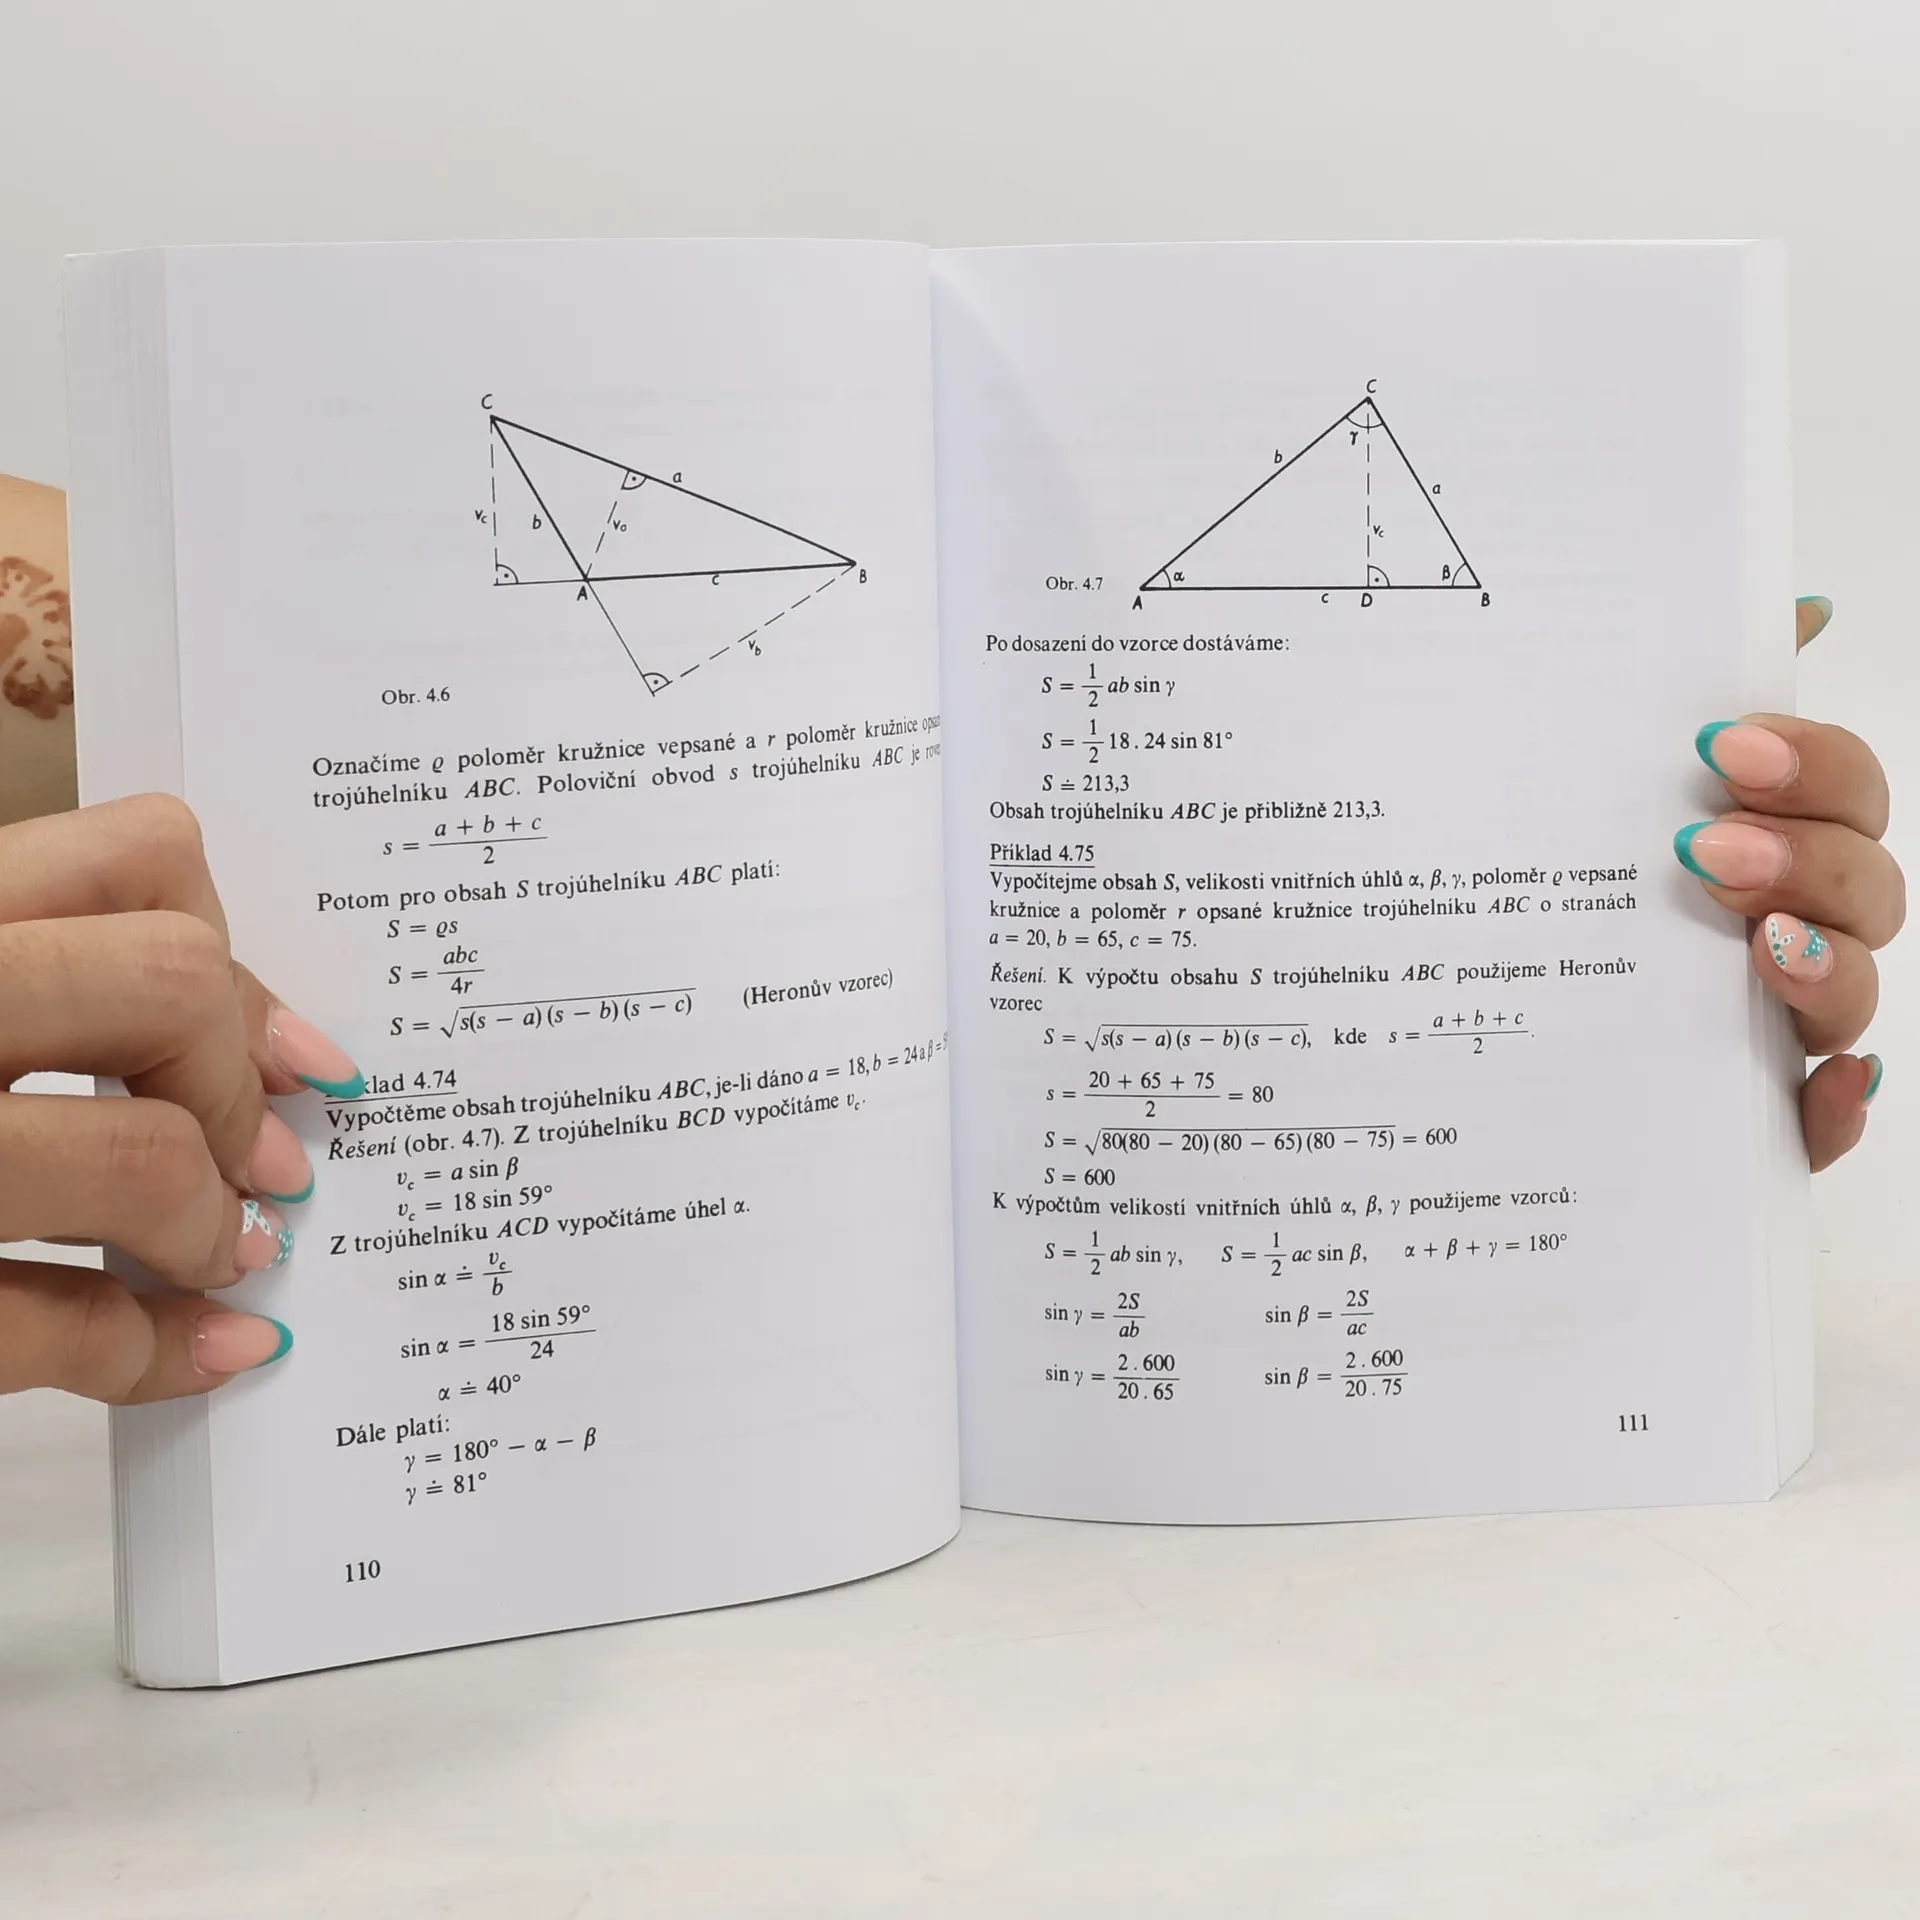 C
a
v_c
b
v_a
c
A
B
v_b
Obr. 4.6
Označíme ϱ poloměr kružnice vepsané a r poloměr kružnice
trojúhelníku ABC. Poloviční obvod s trojúhelníku ABC je
s = (a + b + c)/2
Potom pro obsah S trojúhelníku ABC platí:
S = ϱs
S = abc/4r
S = √(s(s − a)(s − b)(s − c)) (Heronův vzorec)
4.74
Vypočtěme obsah trojúhelníku ABC, je-li dáno a = 18, b = 24 a β =
Řešení (obr. 4.7). Z trojúhelníku BCD vypočítáme v_c.
v_c = a sin β
v_c = 18 sin 59°
Z trojúhelníku ACD vypočítáme úhel α.
sin α ≐ v_c/b
sin α = 18 sin 59°/24
α ≐ 40°
Dále platí:
γ = 180° − α − β
γ ≐ 81°
110
C
γ
b
a
v_c
Obr. 4.7
α
β
A
c
D
B
Po dosazení do vzorce dostáváme:
S = 1/2 ab sin γ
S = 1/2 18 . 24 sin 81°
S ≐ 213,3
Obsah trojúhelníku ABC je přibližně 213,3.
Příklad 4.75
Vypočítejme obsah S, velikosti vnitřních úhlů α, β, γ, poloměr ϱ vepsané
kružnice a poloměr r opsané kružnice trojúhelníku ABC o stranách
a = 20, b = 65, c = 75.
Řešení. K výpočtu obsahu S trojúhelníku ABC použijeme Heronův
vzorec
S = √(s(s − a)(s − b)(s − c)), kde s = (a + b + c)/2.
s = (20 + 65 + 75)/2 = 80
S = √(80(80 − 20)(80 − 65)(80 − 75)) = 600
S = 600
K výpočtům velikostí vnitřních úhlů α, β, γ použijeme vzorců:
S = 1/2 ab sin γ, S = 1/2 ac sin β, α + β + γ = 180°
sin γ = 2S/ab sin β = 2S/ac
sin γ = 2 . 600/20 . 65 sin β = 2 . 600/20 . 75
111